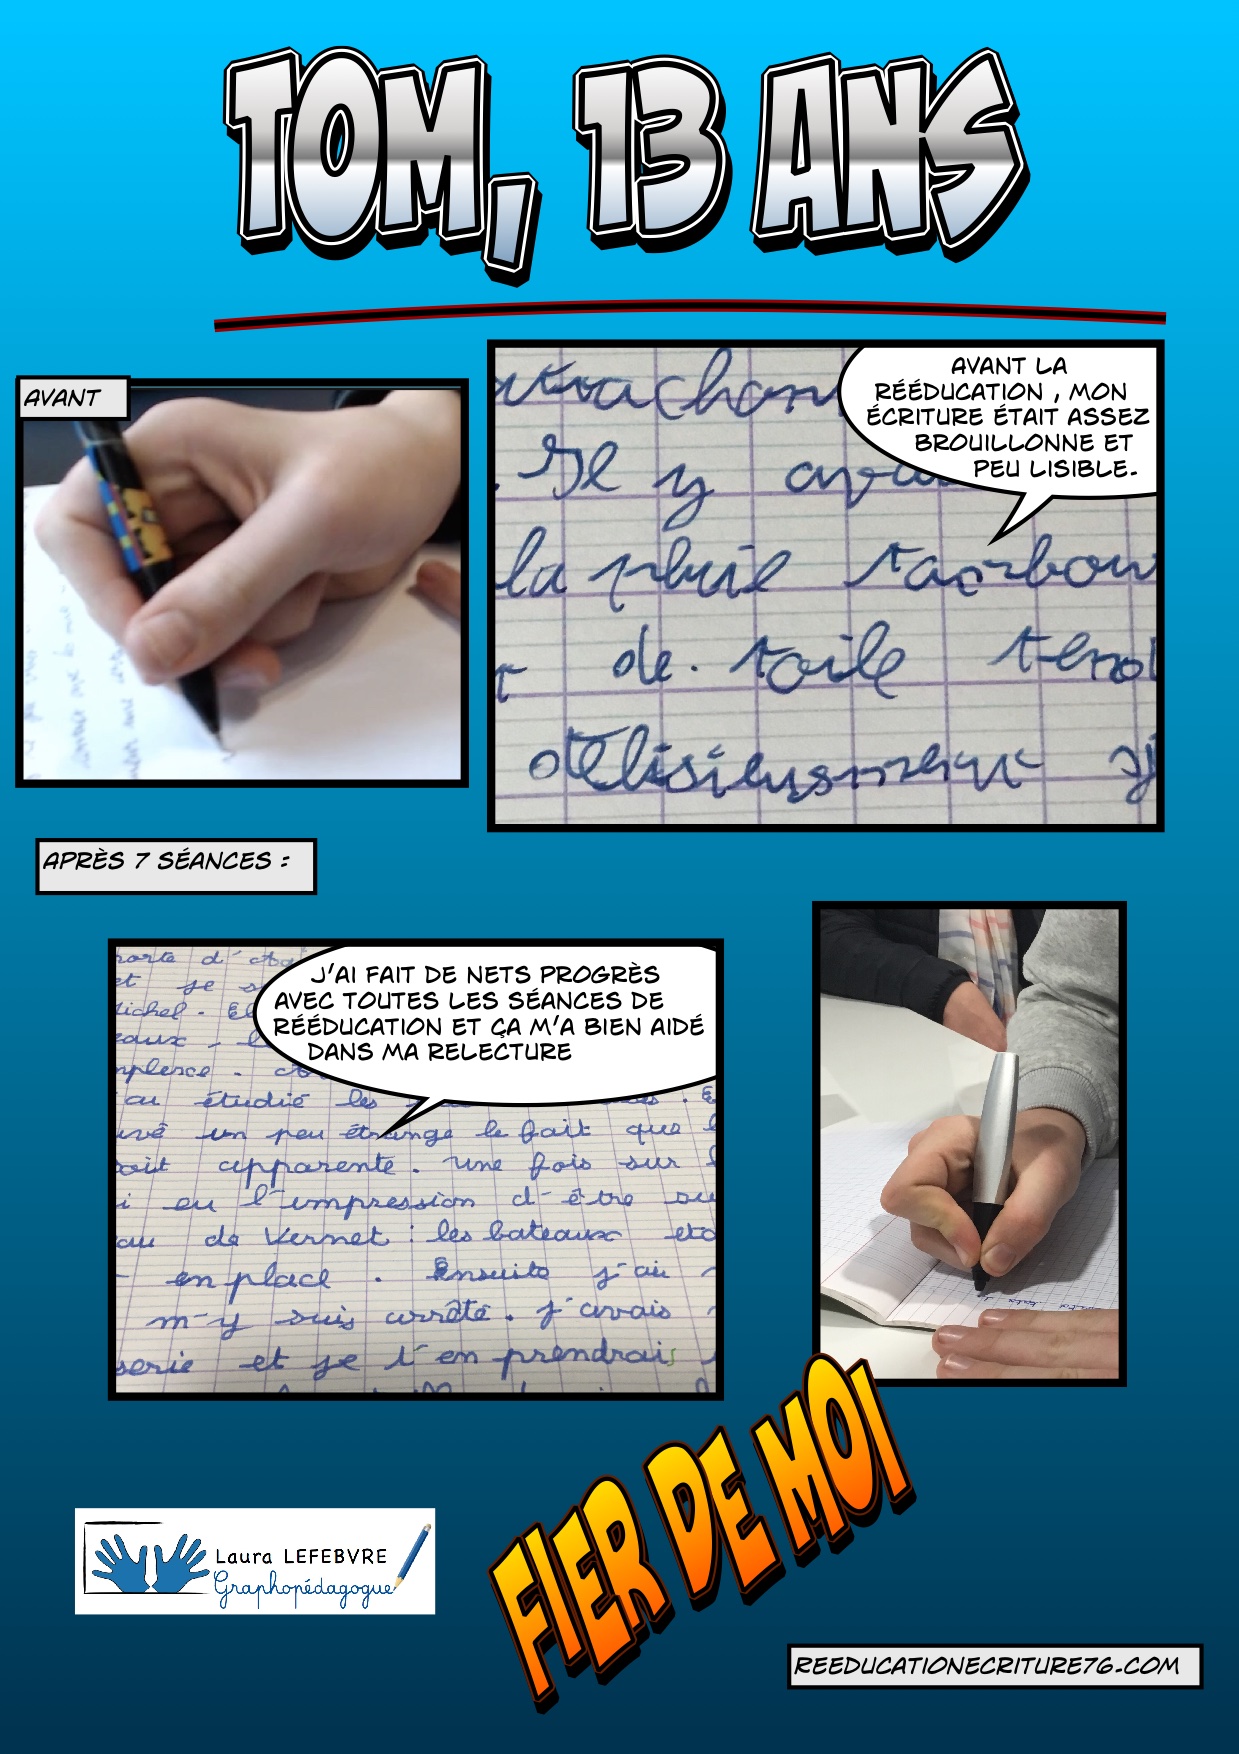 TOM, 13 ANS
AVANT
AVANT LA
RÉÉDUCATION , MON
ÉCRITURE ÉTAIT ASSEZ
BROUILLONNE ET
PEU LISIBLE.
Il y
la pluie
de toile
APRÈS 7 SÉANCES :
J'AI FAIT DE NETS PROGRÈS
AVEC TOUTES LES SÉANCES DE
RÉÉDUCATION ET ÇA M'A BIEN AIDÉ
DANS MA RELECTURE
porte d'
et je s
ichel. El
eaux
au étudié les
uvé un peu étrange le fait que l
soit apparente. une fois sur l
i eu l'impression d'être su
au de Vernet : les bateaux eta
en place . Ensuite j'ai
m'y suis arrêté. j'avais
serie et je l'en prendrais
FIER DE MOI
Laura LEFEBVRE
Graphopédagogue
REEDUCATIONECRITURE76.COM